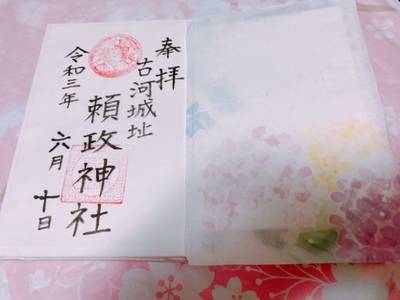 奉拝
古河城址
頼政神社
令和三年
六月
十日